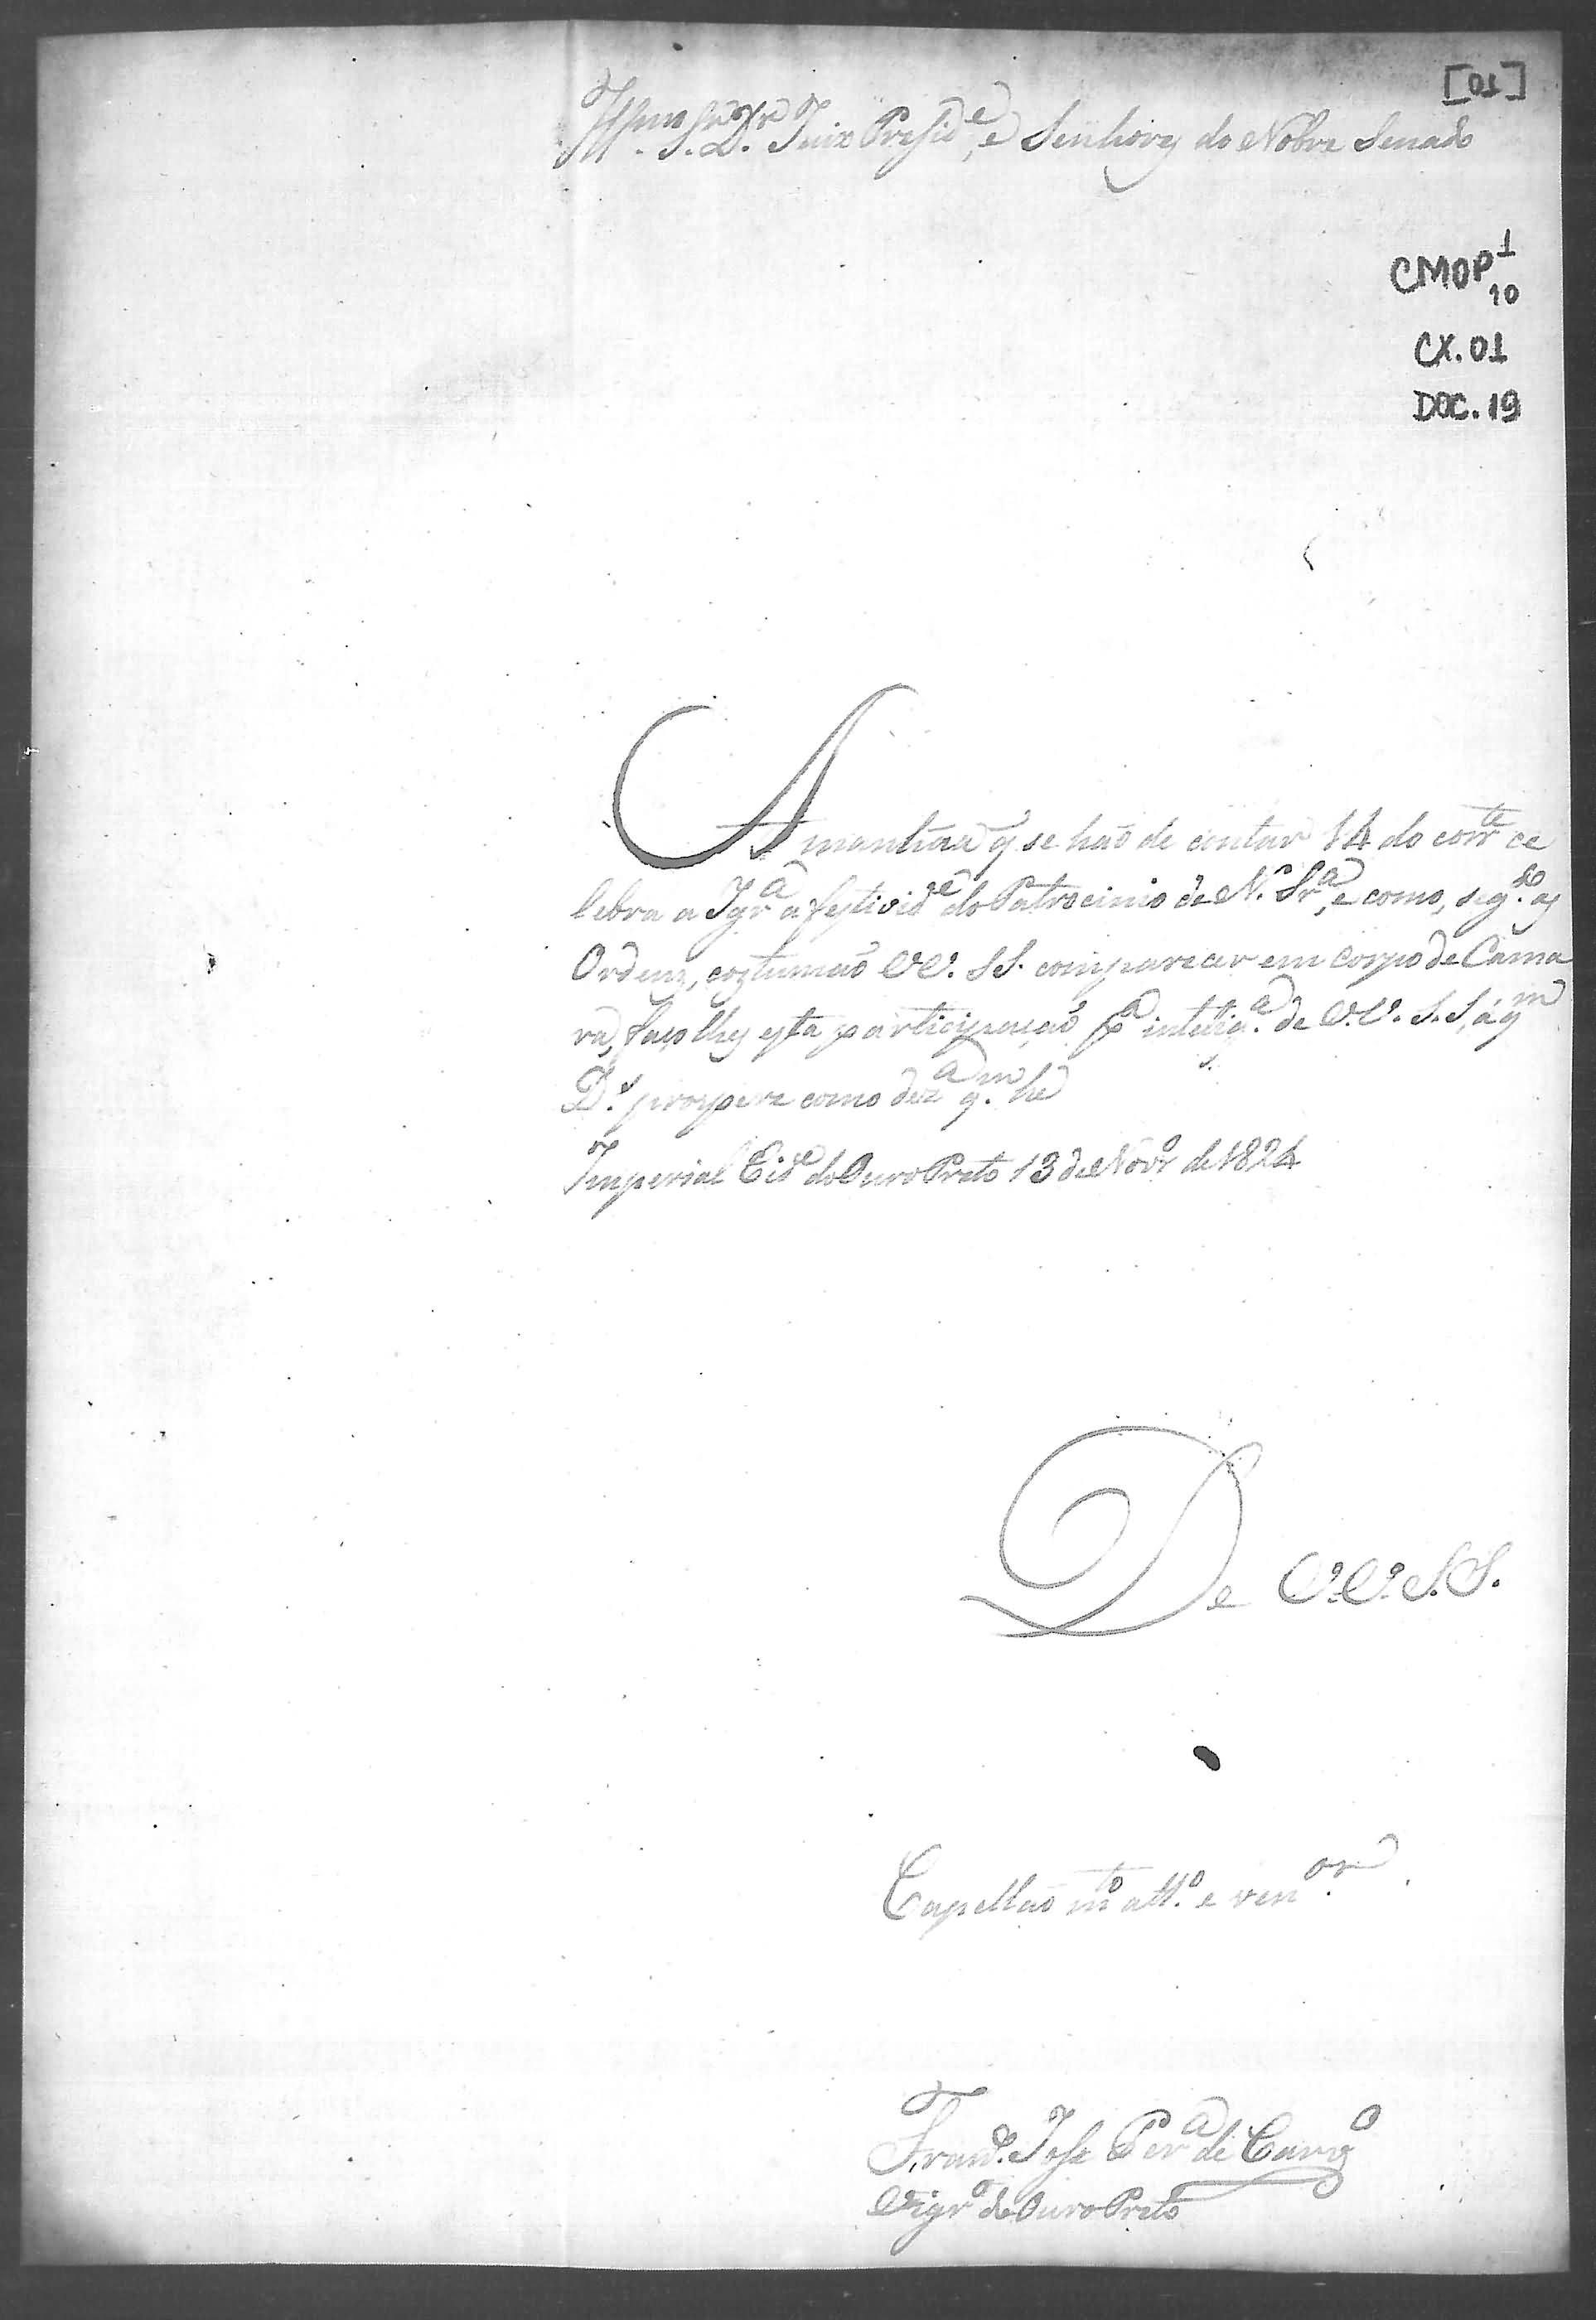 [01]
Illmo Snr. Dr. Juiz Preside, e Senhores do Nobre Senado
CMOP 1
10
CX. 01
DOC. 19
Amanhãa q̃ se haõ de contar 14 do corrte ce
lebra a Igra a festivide do Patrocinio de N. Sra, e como, sego. as
Ordens, costumaõ VV. SS. comparecer em corpo de Cama
ra, faço lhes esta participaçaõ pa intelliga. de V.V. S.S, á qm
Ds. prospere como deza qm. he
Imperial Cide do Ouro Preto 13 de Novo de 1824
De V.V. S.S.
Capellaõ mto atto. e venor.
Franco. Jose Pera de Carvo
Vigro de Ouro Preto